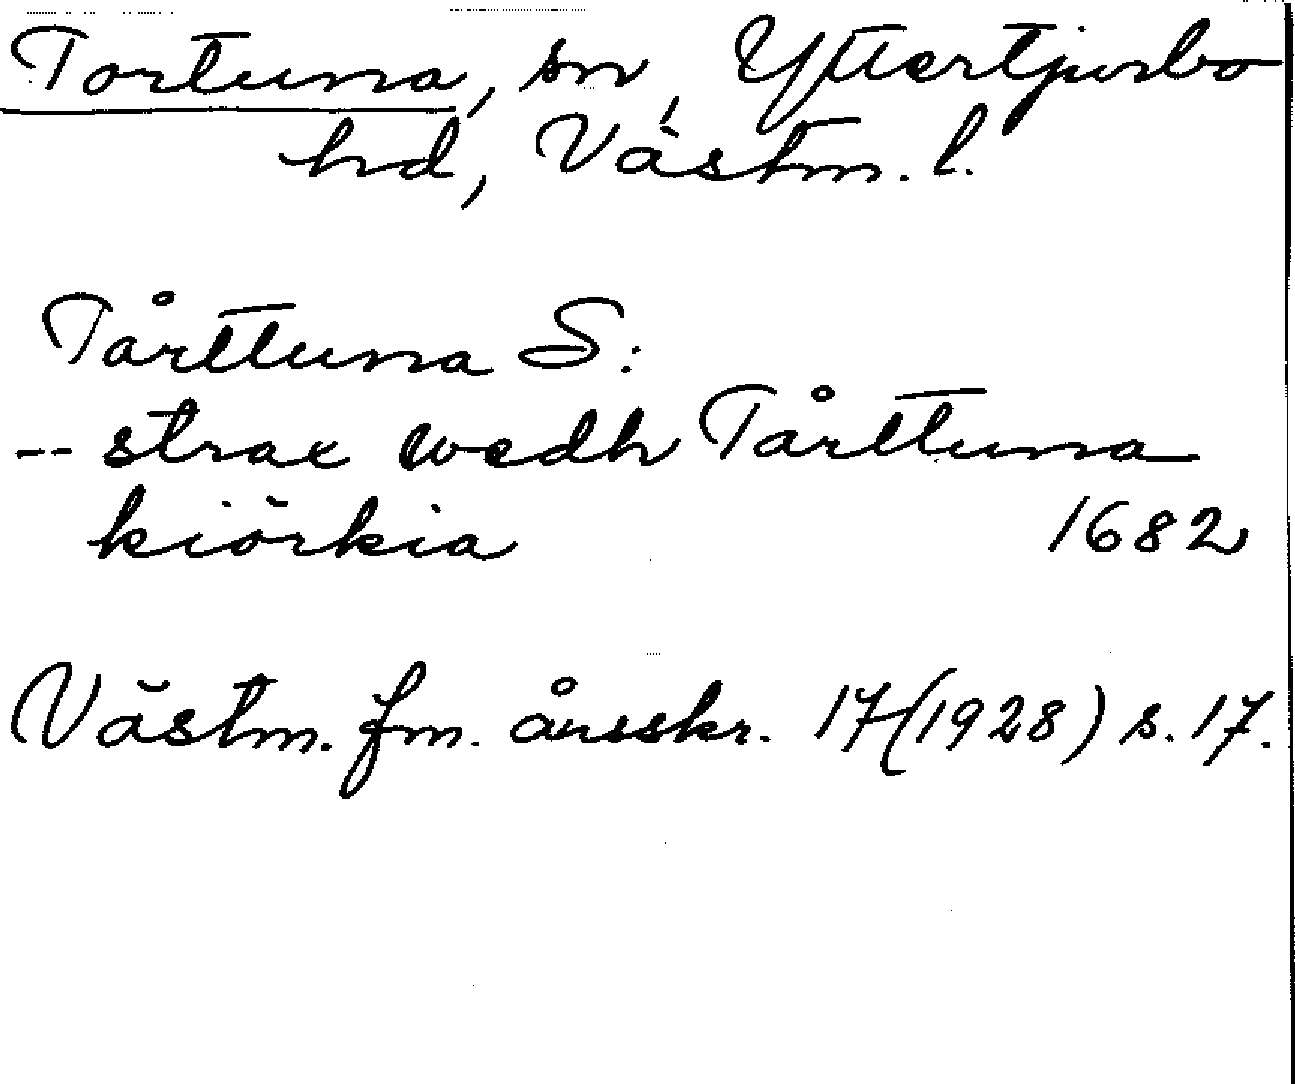 Tortuna, sn, Yttertjurbo
hd, Västm. l.
Tårttuna S:
-- strax wedh Tårttuna
kiörkia 1682
Västm. fm. årsskr. 17 (1928) s. 17.